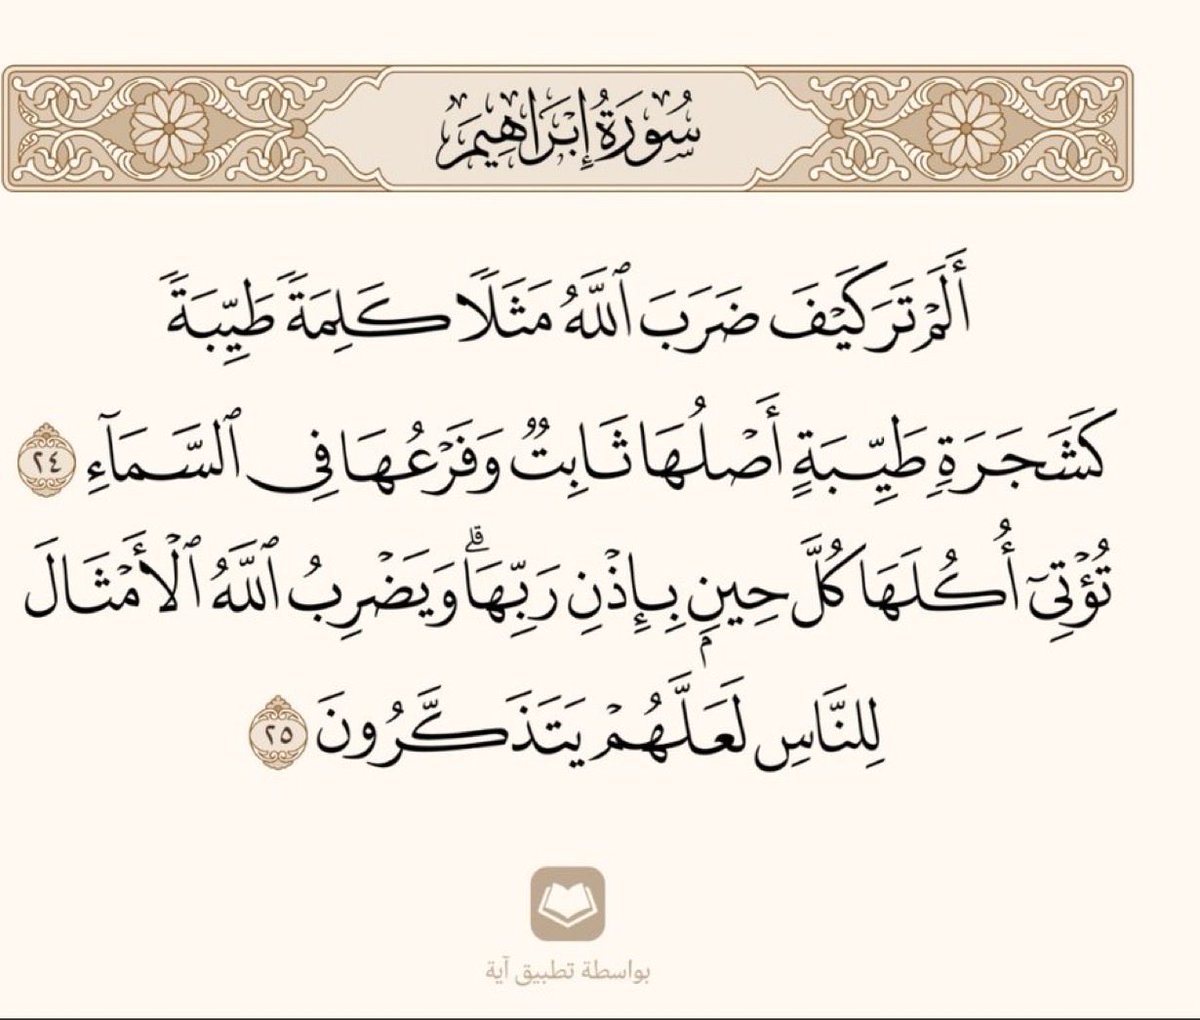 سُورَةُ إِبْرَاهِيمَ
أَلَمْ تَرَ كَيْفَ ضَرَبَ ٱللَّهُ مَثَلًا كَلِمَةً طَيِّبَةً
كَشَجَرَةٍ طَيِّبَةٍ أَصْلُهَا ثَابِتٌ وَفَرْعُهَا فِى ٱلسَّمَآءِ ٢٤
تُؤْتِىٓ أُكُلَهَا كُلَّ حِينٍۭ بِإِذْنِ رَبِّهَاۗ وَيَضْرِبُ ٱللَّهُ ٱلْأَمْثَالَ
لِلنَّاسِ لَعَلَّهُمْ يَتَذَكَّرُونَ ٢٥
بواسطة تطبيق آية